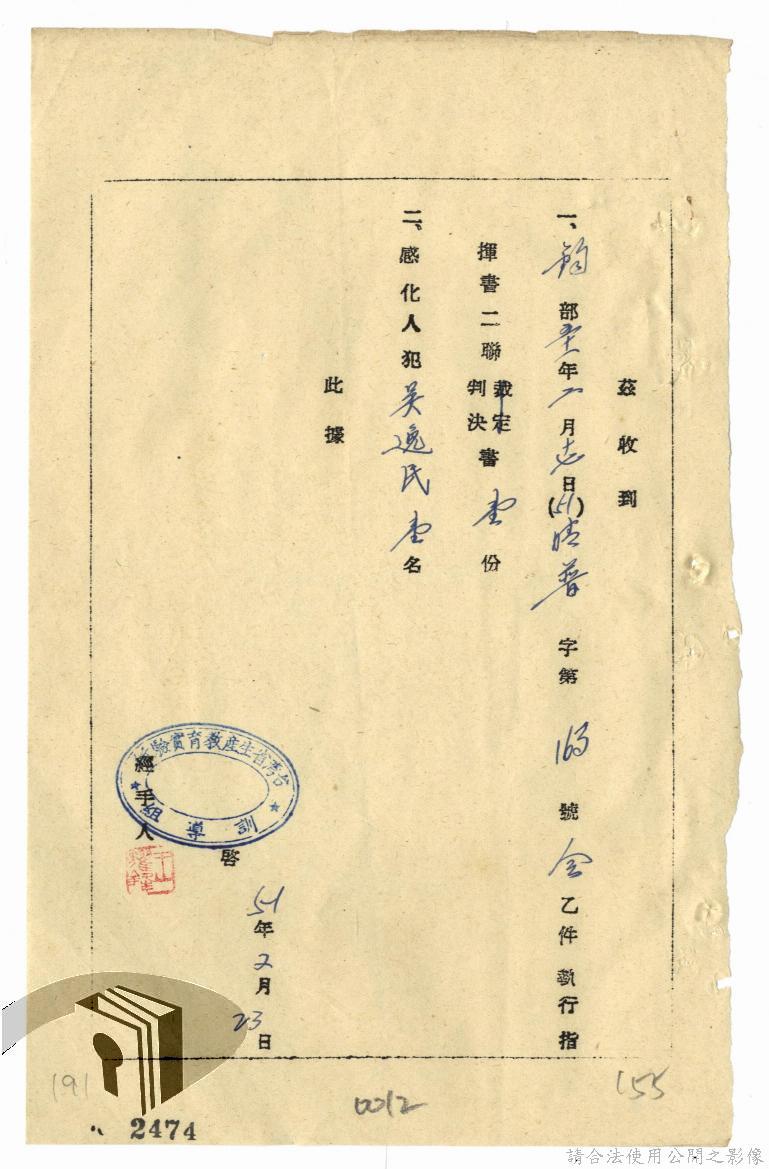 茲收到
一、鈞部 年二月 日(51)清普字第 號令乙件執行指
揮書二聯裁定判決書壹份
二、感化人犯吳逸民壹名
此據
台灣省生產教育實驗所
訓導
啓
經手人
51年2月23日
191
0012
155
2474
請合法使用公開之影像